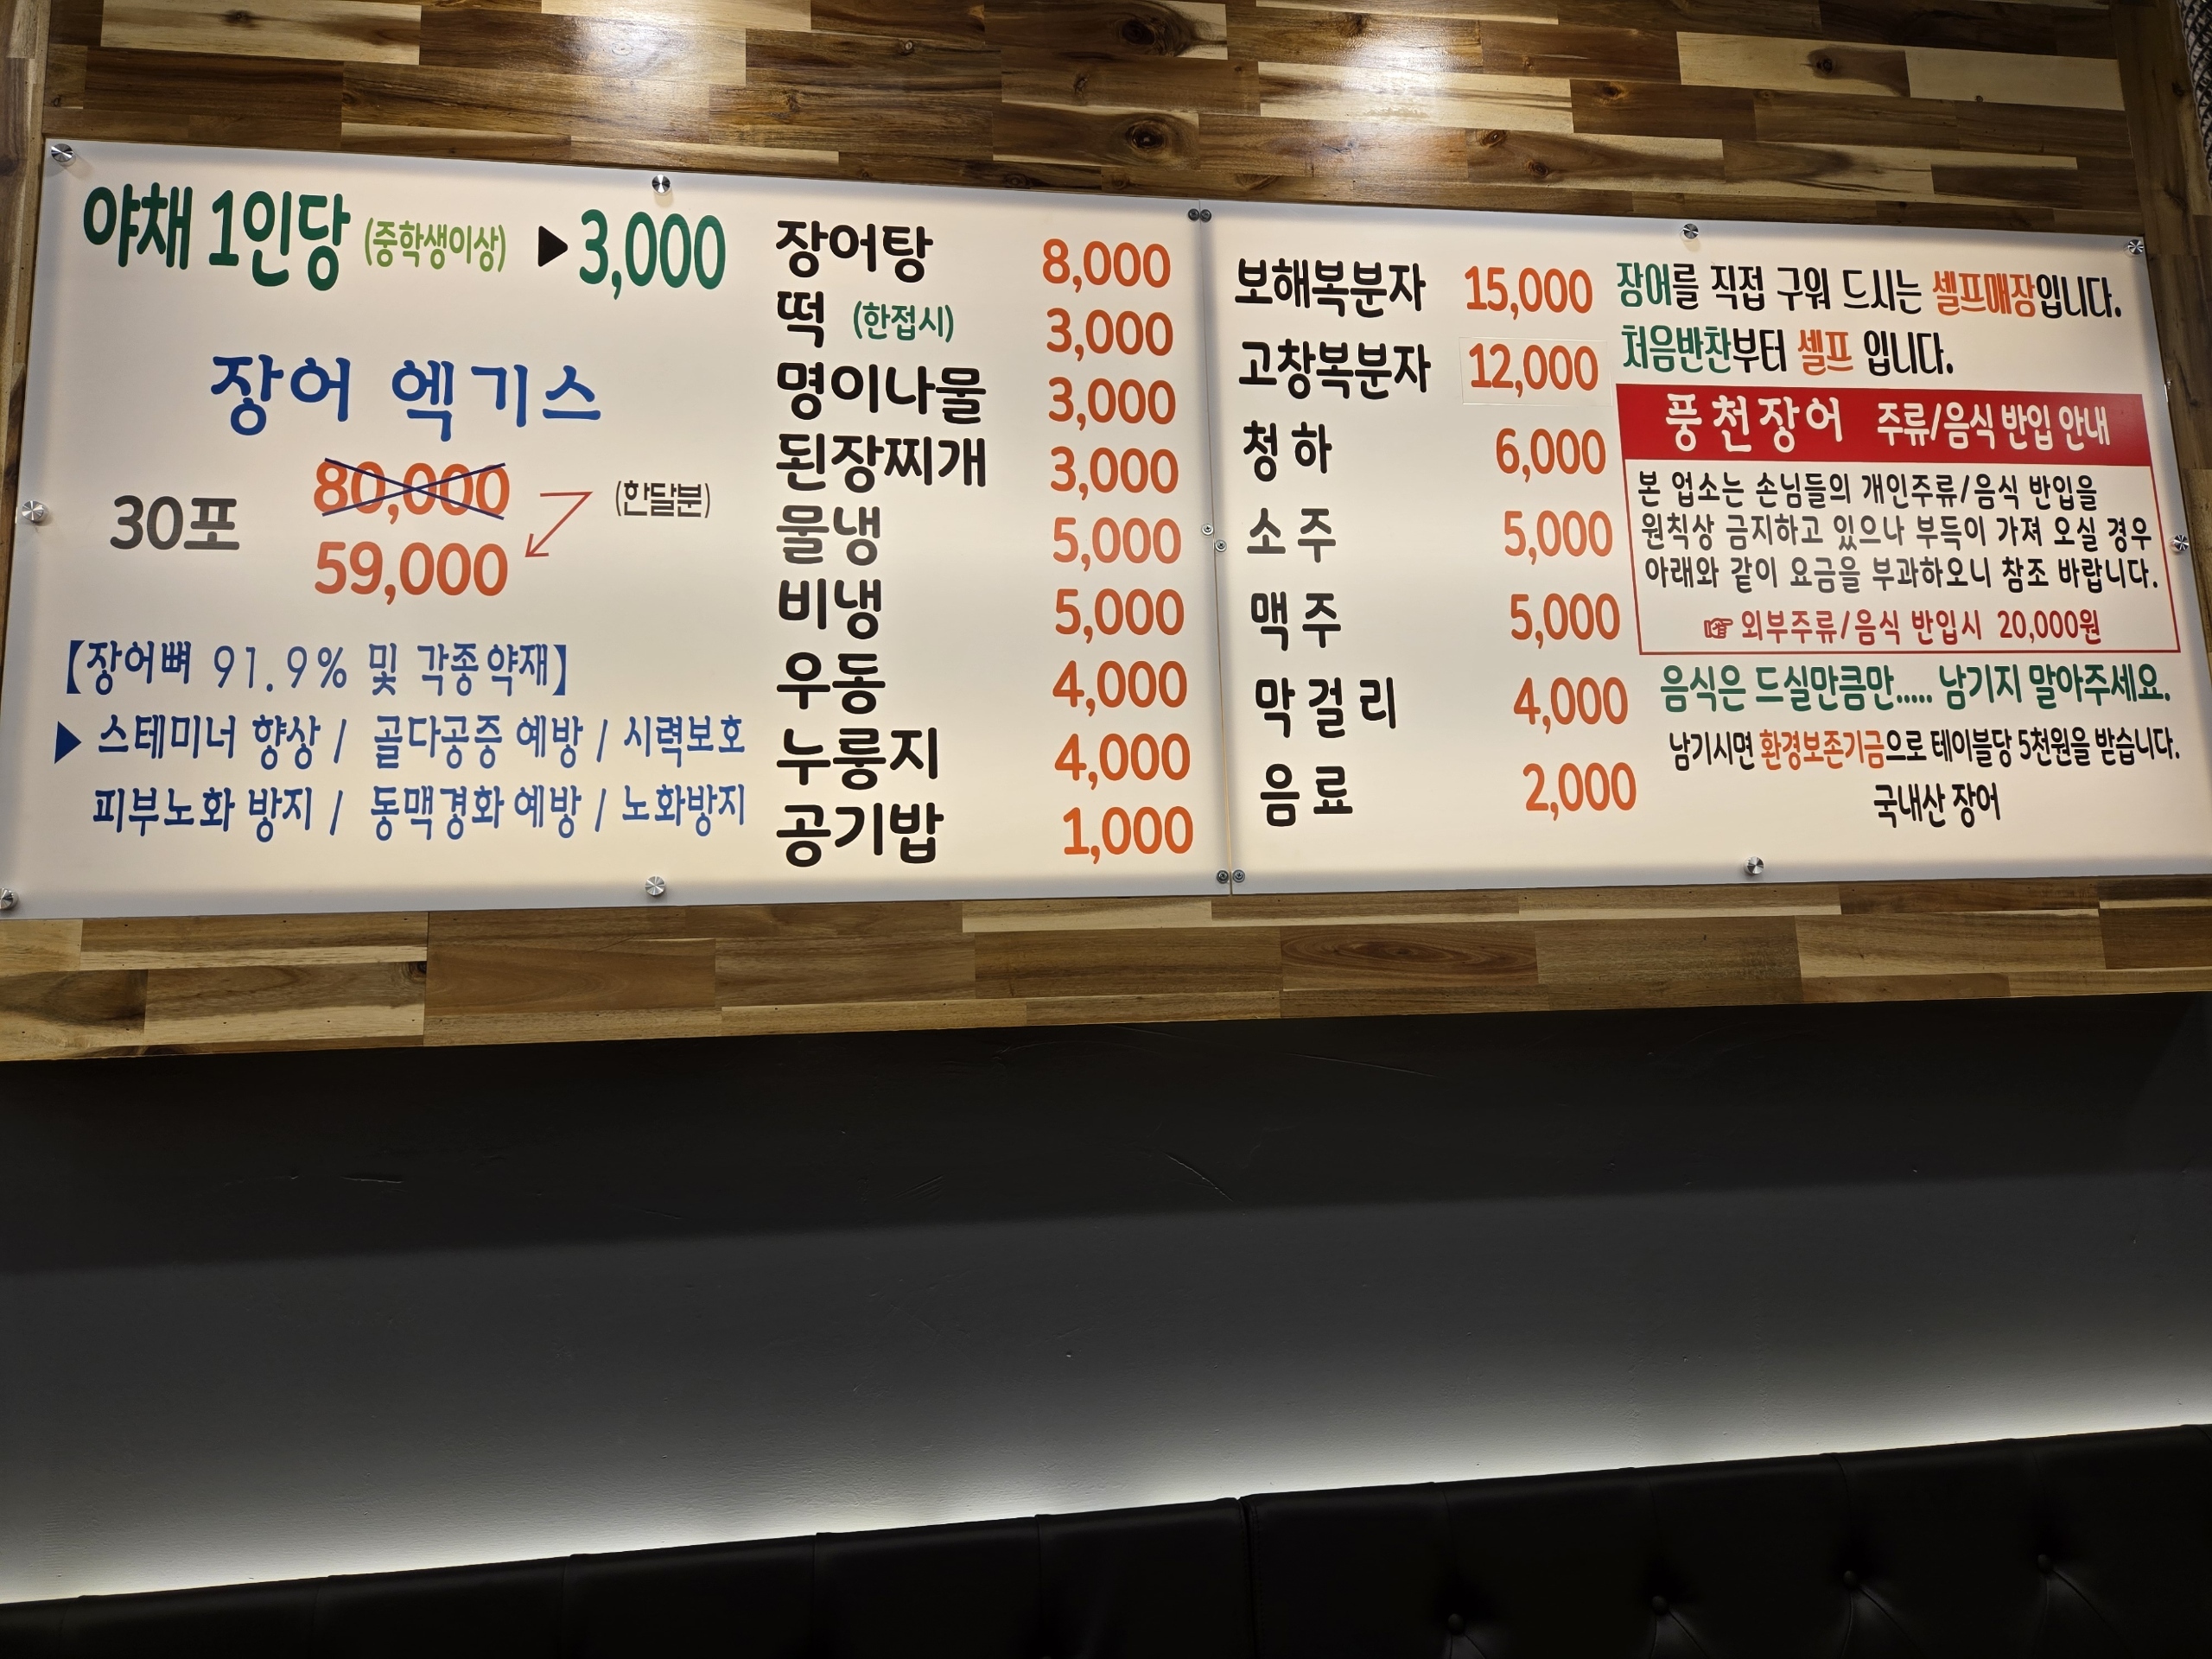 야채 1인당 (중학생이상) ▶ 3,000
장어 엑기스
30포 80,000 (한달분)
59,000
【장어뼈 91.9% 및 각종약재】
▶ 스테미너 향상 / 골다공증 예방 / 시력보호
피부노화 방지 / 동맥경화 예방 / 노화방지
장어탕 8,000
떡 (한접시) 3,000
명이나물 3,000
된장찌개 3,000
물냉 5,000
비냉 5,000
우동 4,000
누룽지 4,000
공기밥 1,000
보해복분자 15,000
고창복분자 12,000
청하 6,000
소주 5,000
맥주 5,000
막걸리 4,000
음료 2,000
장어를 직접 구워 드시는 셀프매장입니다.
처음반찬부터 셀프 입니다.
풍천장어 주류/음식 반입 안내
본 업소는 손님들의 개인주류/음식 반입을
원칙상 금지하고 있으나 부득이 가져 오실 경우
아래와 같이 요금을 부과하오니 참조 바랍니다.
☞ 외부주류/음식 반입시 20,000원
음식은 드실만큼만..... 남기지 말아주세요.
남기시면 환경보존기금으로 테이블당 5천원을 받습니다.
국내산 장어